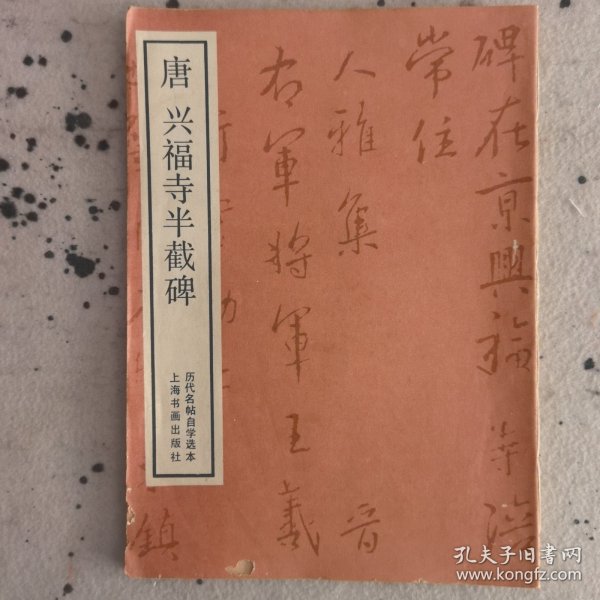 唐 兴福寺半截碑
历代名帖自学选本
上海书画出版社
碑在京興福寺
常住
人雅集 晋
右軍将軍王羲
鎮
孔夫子旧书网
www.kongfz.com